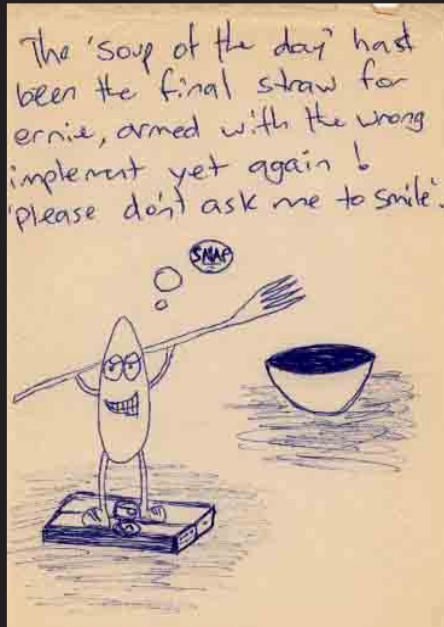 The 'soup of the day' hast
been the final straw for
ernie, armed with the wrong
implement yet again!
'please don't ask me to smile'.
SNAP